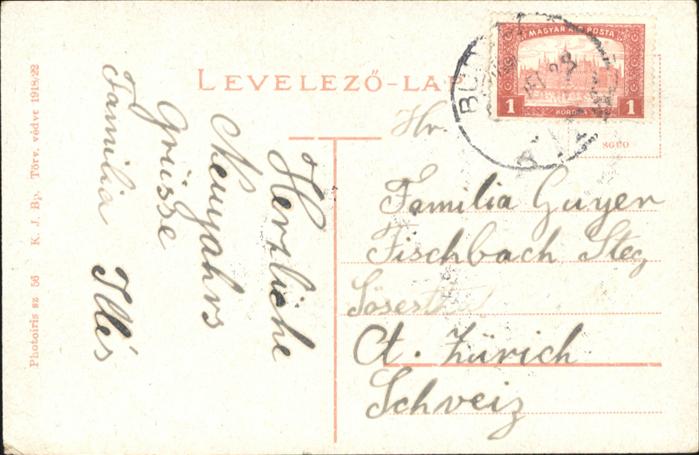 LEVELEZŐ-LA
MAGYAR KIR. POSTA
1 KORONA 1
BU
Herzliche
Neujahrs
Grüsse
Familia Illés
Hr.
Familia Guyer
Fischbach Steg
Ct. Zürich
Schveiz
Photoiris sz 56 K. J. Bp. Törv. védve 1918/22